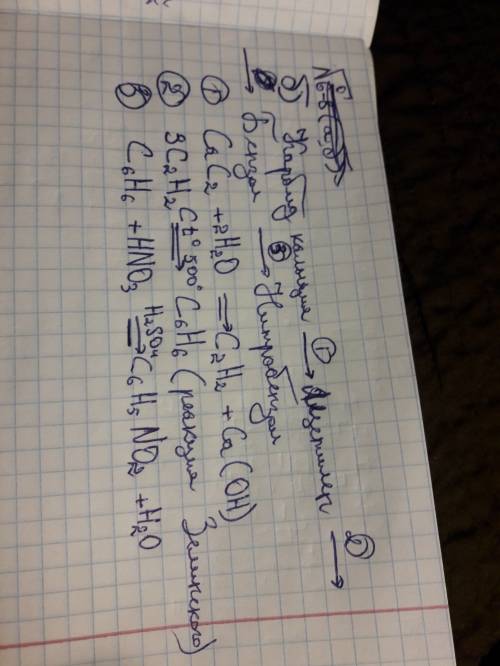 № 6-8 (а, б)
б) Карбид кальция ①→ Ацетилен ②→
→ Бензол ③→ Нитробензол
① CaC₂ + 2H₂O ⇒ C₂H₂ + Ca(OH)
② 3C₂H₂ C t° 500° ⇒ C₆H₆ (реакция Зелинского)
③ C₆H₆ + HNO₃ H₂SO₄ ⇒ C₆H₅NO₂ + H₂O